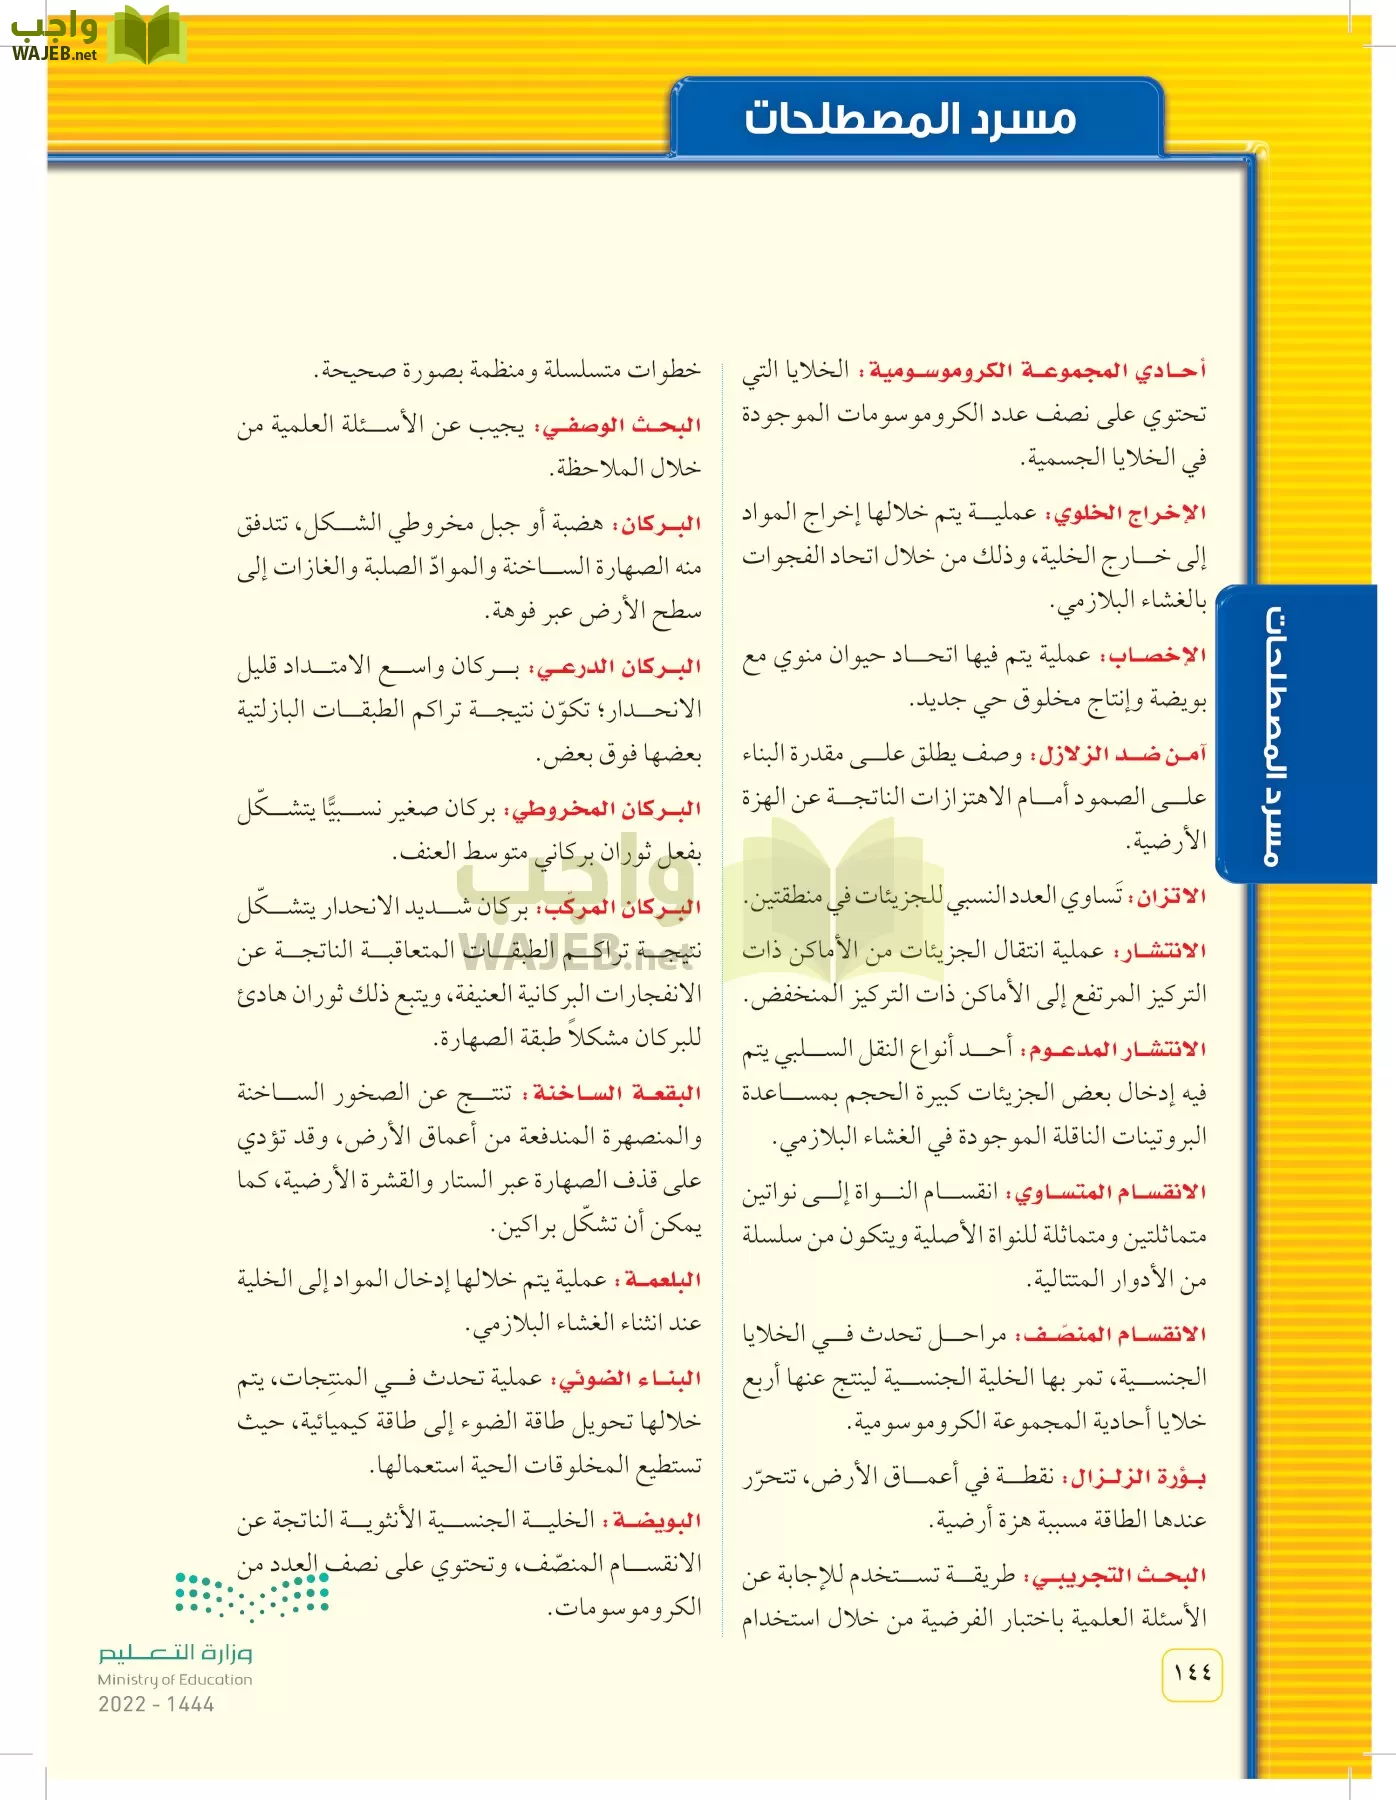 واجب
WAJEB.net
مسرد المصطلحات
أحادي المجموعة الكروموسومية: الخلايا التي
تحتوي على نصف عدد الكروموسومات الموجودة
في الخلايا الجسمية.
الإخراج الخلوي: عملية يتم خلالها إخراج المواد
إلى خارج الخلية، وذلك من خلال اتحاد الفجوات
بالغشاء البلازمي.
الإخصاب: عملية يتم فيها اتحاد حيوان منوي مع
بويضة وإنتاج مخلوق حي جديد.
آمن ضد الزلازل: وصف يطلق على مقدرة البناء
على الصمود أمام الاهتزازات الناتجة عن الهزة
الأرضية.
الاتزان: تَساوي العدد النسبي للجزيئات في منطقتين.
الانتشار: عملية انتقال الجزيئات من الأماكن ذات
التركيز المرتفع إلى الأماكن ذات التركيز المنخفض.
الانتشار المدعوم: أحد أنواع النقل السلبي يتم
فيه إدخال بعض الجزيئات كبيرة الحجم بمساعدة
البروتينات الناقلة الموجودة في الغشاء البلازمي.
الانقسام المتساوي: انقسام النواة إلى نواتين
متماثلتين ومتماثلة للنواة الأصلية ويتكون من سلسلة
من الأدوار المتتالية.
الانقسام المنصّف: مراحل تحدث في الخلايا
الجنسية، تمر بها الخلية الجنسية لينتج عنها أربع
خلايا أحادية المجموعة الكروموسومية.
بؤرة الزلزال: نقطة في أعماق الأرض، تتحرّر
عندها الطاقة مسببة هزة أرضية.
البحث التجريبي: طريقة تستخدم للإجابة عن
الأسئلة العلمية باختبار الفرضية من خلال استخدام
خطوات متسلسلة ومنظمة بصورة صحيحة.
البحث الوصفي: يجيب عن الأسئلة العلمية من
خلال الملاحظة.
البركان: هضبة أو جبل مخروطي الشكل، تتدفق
منه الصهارة الساخنة والموادّ الصلبة والغازات إلى
سطح الأرض عبر فوهة.
البركان الدرعي: بركان واسع الامتداد قليل
الانحدار؛ تكوّن نتيجة تراكم الطبقات البازلتية
بعضها فوق بعض.
البركان المخروطي: بركان صغير نسبيًّا يتشكّل
بفعل ثوران بركاني متوسط العنف.
البركان المركّب: بركان شديد الانحدار يتشكّل
نتيجة تراكم الطبقات المتعاقبة الناتجة عن
الانفجارات البركانية العنيفة، ويتبع ذلك ثوران هادئ
للبركان مشكلاً طبقة الصهارة.
البقعة الساخنة: تنتج عن الصخور الساخنة
والمنصهرة المندفعة من أعماق الأرض، وقد تؤدي
على قذف الصهارة عبر الستار والقشرة الأرضية، كما
يمكن أن تشكّل براكين.
البلعمة: عملية يتم خلالها إدخال المواد إلى الخلية
عند انثناء الغشاء البلازمي.
البناء الضوئي: عملية تحدث في المنتِجات، يتم
خلالها تحويل طاقة الضوء إلى طاقة كيميائية، حيث
تستطيع المخلوقات الحية استعمالها.
البويضة: الخلية الجنسية الأنثوية الناتجة عن
الانقسام المنصّف، وتحتوي على نصف العدد من
الكروموسومات.
مسرد المصطلحات
واجب
WAJEB.net
وزارة التعليم
Ministry of Education
2022 - 1444
١٤٤